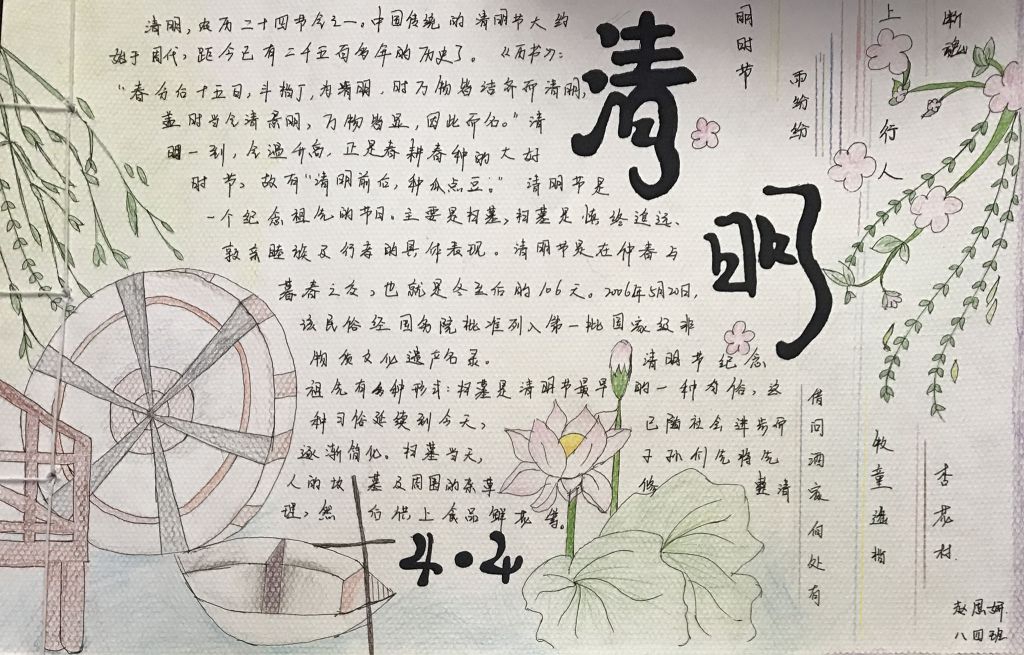 清明，农历二十四节气之一。中国传统的清明节大约
始于周代，距今已有二千五百多年的历史了。《历书》：
“春分后十五日，斗指丁，为清明，时万物皆洁齐而清明，
盖时当气清景明，万物皆显，因此而名。”清
明一到，气温升高，正是春耕春种的大好
时节，故有“清明前后，种瓜点豆。”清明节是
一个纪念祖先的节日。主要是扫墓，扫墓是慎终追远、
敦亲睦族及行孝的具体表现。清明节是在仲春与
暮春之交，也就是冬至后的106天。2006年5月20日，
该民俗经国务院批准列入第一批国家级非
物质文化遗产名录。 清明节纪念
祖先有多种形式：扫墓是清明节最早的一种习俗，这
种习俗延续到今天， 已随社会进步而
逐渐简化。扫墓当天， 子孙们先将先
人的坟墓及周围的杂草 修 整清
理，然后供上食品鲜花等。
清
明
4·4
明时节
雨纷纷
上行人
断魂
借问酒家何处有
牧童遥指
杏花村
赵恩妍
八四班